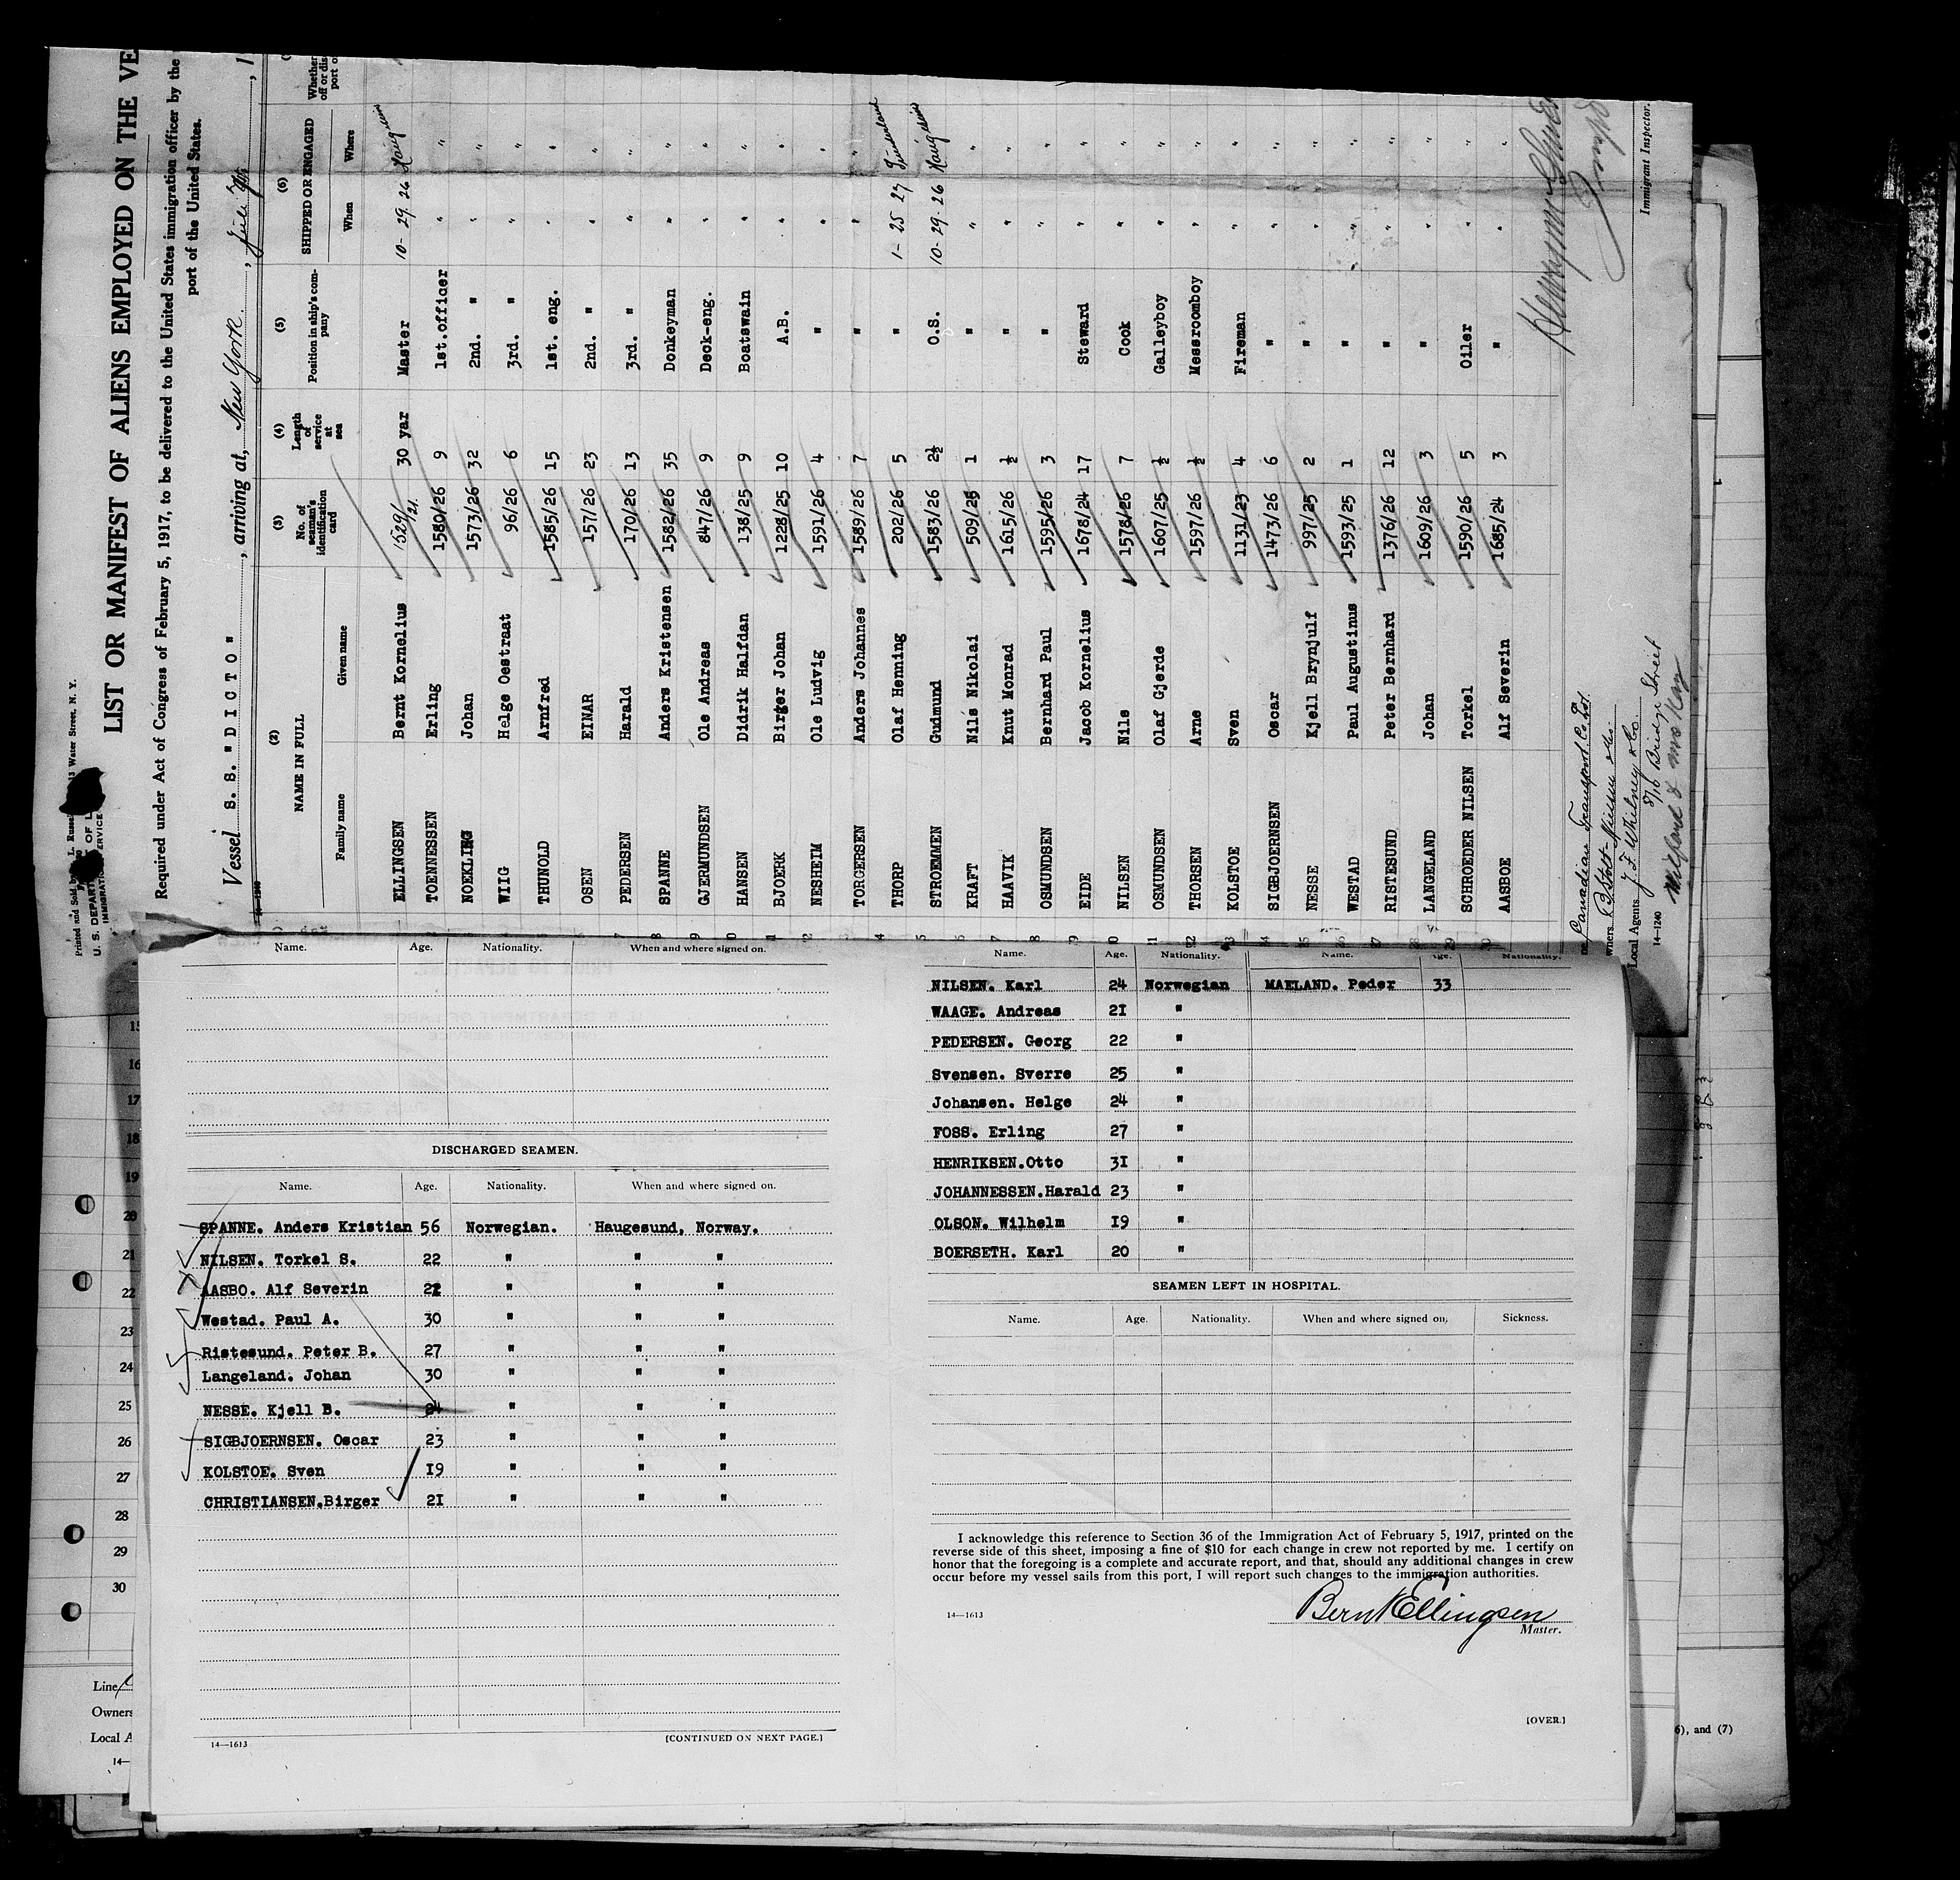 Printed and Sold by L. Russell 13 Water Street, N. Y.
U. S. DEPARTMENT OF L
IMMIGRATION SERVICE
LIST OR MANIFEST OF ALIENS EMPLOYED ON THE VE
Required under Act of Congress of February 5, 1917, to be delivered to the United States immigration officer by the
port of the United States.
Vessel S. S. "DICTO", arriving at, New York.
(2) NAME IN FULL (3) No. of seaman's identification card (4) Length of service at sea (5) Position in ship's company (6) SHIPPED OR ENGAGED
Family name Given name When Where
ELLINGSEN Bernt Kornelius 1529/21. 30 yar Master 10-29.26
TOENNESSEN Erling 1580/26 9 1st.officer " "
NOEKLING Johan 1573/26 32 2nd. " " "
WIIG Helge Oestraat 96/26 6 3rd. " " "
THUNOLD Arnfred 1585/26 15 1st. eng. " "
OSEN EINAR 157/26 23 2nd. " " "
PEDERSEN Harald 170/26 13 3rd. " " "
SPANNE Anders Kristensen 1582/26 35 Donkeyman " "
GJERMUNDSEN Ole Andreas 847/26 9 Deck-eng. " "
HANSEN Didrik Halfdan 138/25 9 Boatswain " "
BJOERK Birger Johan 1228/25 10 A.B. " "
NESHEIM Ole Ludvig 1591/26 4 " " "
TORGERSEN Anders Johannes 1589/26 7 " " "
THORP Olaf Henning 202/26 5 " 1-25 27
STROEMMEN Gudmund 1583/26 2½ O.S. 10-29.26
KRAFT Nils Nikolai 509/26 1 " " "
HAAVIK Knut Monrad 1615/26 ½ " " "
OSMUNDSEN Bernhard Paul 1595/26 3 " " "
EIDE Jacob Kornelius 1678/24 17 Steward " "
NILSEN Nils 1578/26 7 Cook " "
OSMUNDSEN Olaf Gjerde 1607/25 ½ Galleyboy " "
THORSEN Arne 1597/26 ½ Messroomboy " "
KOLSTOE Sven 1131/23 4 Fireman " "
SIGBJOERNSEN Oscar 1473/26 6 " " "
NESSE Kjell Brynjulf 997/25 2 " " "
WESTAD Paul Augustinus 1593/25 1 " " "
RISTESUND Peter Bernhard 1376/26 12 " " "
LANGELAND Johan 1609/26 3 " " "
SCHROEDER NILSEN Torkel 1590/26 5 Oiler " "
AASBOE Alf Severin 1685/24 3 " " "
Canadian Transport Co. Ltd.
Local Agents J F Whitney & Co
8/10 Bridge Street
14-1240
Immigrant Inspector.
Name. Age. Nationality. When and where signed on.
DISCHARGED SEAMEN.
Name. Age. Nationality. When and where signed on.
SPANNE. Anders Kristian 56 Norwegian. Haugesund, Norway.
NILSEN. Torkel S. 22 " " "
AASBO. Alf Severin 22 " " "
Westad. Paul A. 30 " " "
Ristesund. Peter B. 27 " " "
Langeland. Johan 30 " " "
NESSE. Kjell B. 24 " " "
SIGBJOERNSEN. Oscar 23 " " "
KOLSTOE. Sven 19 " " "
CHRISTIANSEN.Birger 21 " " "
14—1613 [CONTINUED ON NEXT PAGE.]
Name. Age. Nationality. Name. Age. Nationality.
NILSEN. Karl 24 Norwegian MAELAND. Peder 33
WAAGE. Andreas 21 "
PEDERSEN. Georg 22 "
Svensen. Sverre 25 "
Johansen. Helge 24 "
FOSS. Erling 27 "
HENRIKSEN.Otto 31 "
JOHANNESSEN.Harald 23 "
OLSON. Wilhelm 19 "
BOERSETH. Karl 20 "
SEAMEN LEFT IN HOSPITAL.
Name. Age. Nationality. When and where signed on. Sickness.
I acknowledge this reference to Section 36 of the Immigration Act of February 5, 1917, printed on the
reverse side of this sheet, imposing a fine of $10 for each change in crew not reported by me. I certify on
honor that the foregoing is a complete and accurate report, and that, should any additional changes in crew
occur before my vessel sails from this port, I will report such changes to the immigration authorities.
14—1613
Bernt Ellingsen
Master.
[OVER.]
15
16
17
18
19
20
21
22
23
24
25
26
27
28
29
30
Line
Owners
Local A
14—
6), and (7)